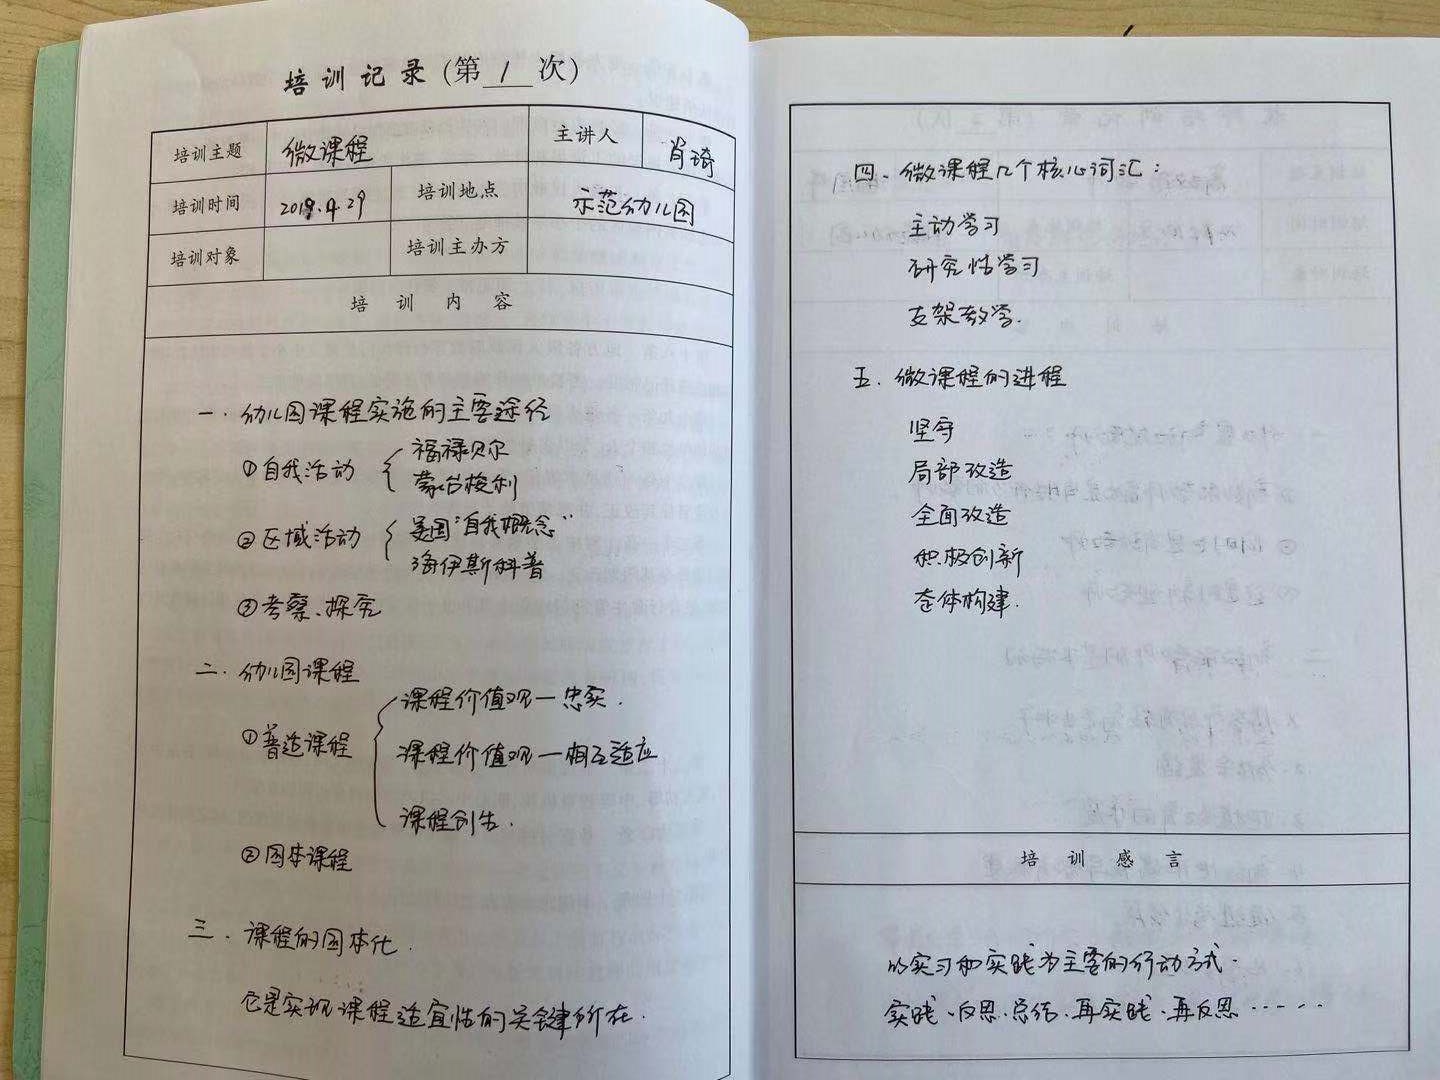 培训记录(第 1 次)
培训主题 微课程 主讲人 肖琦
培训时间 2019.4.29 培训地点 示范幼儿园
培训对象 培训主办方
培训内容
一.幼儿园课程实施的主要途径
①自我活动 福禄贝尔
蒙台梭利
②区域活动 美国"自我概念"
海伊斯科普
③考察、探究
二.幼儿园课程
①普适课程 课程价值观一忠实.
课程价值观一相互适应
课程创生.
②园本课程
三.课程的园本化.
它是实现课程适宜性的关键所在.
四、微课程几个核心词汇:
主动学习
研究性学习
支架教学.
五.微课程的进程
坚守
局部改造
全面改造
积极创新
整体构建.
培训感言
以实习和实践为主要的行动方式.
实践、反思、总结、再实践、再反思……